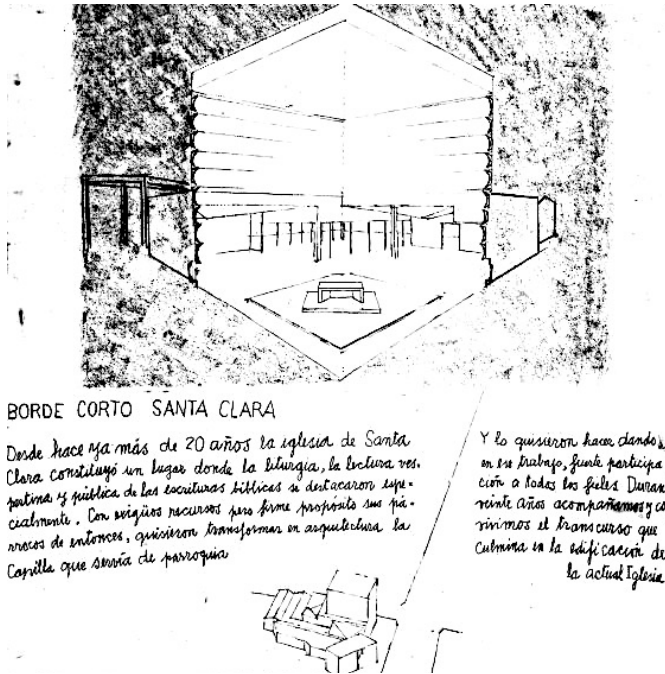 BORDE CORTO SANTA CLARA
Desde hace ya más de 20 años la iglesia de Santa
Clara constituyó un lugar donde la liturgia, la lectura ves-
pertina y pública de las escrituras bíblicas se destacaron espe-
cialmente. Con exigüos recursos pero firme propósito sus pá-
rrocos de entonces, quisieron transformar en arquitectura la
Capilla que servía de parroquia
Y lo quisieron hacer dando
en ese trabajo, fuerte participa
ción a todos los fieles Duran
veinte años acompañamos y co
vivimos el transcurso que
culmina en la edificación de
la actual Iglesia